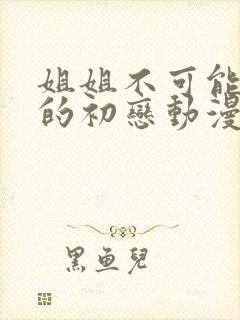 姐姐不可能
的初戀動漫
黑魚兒